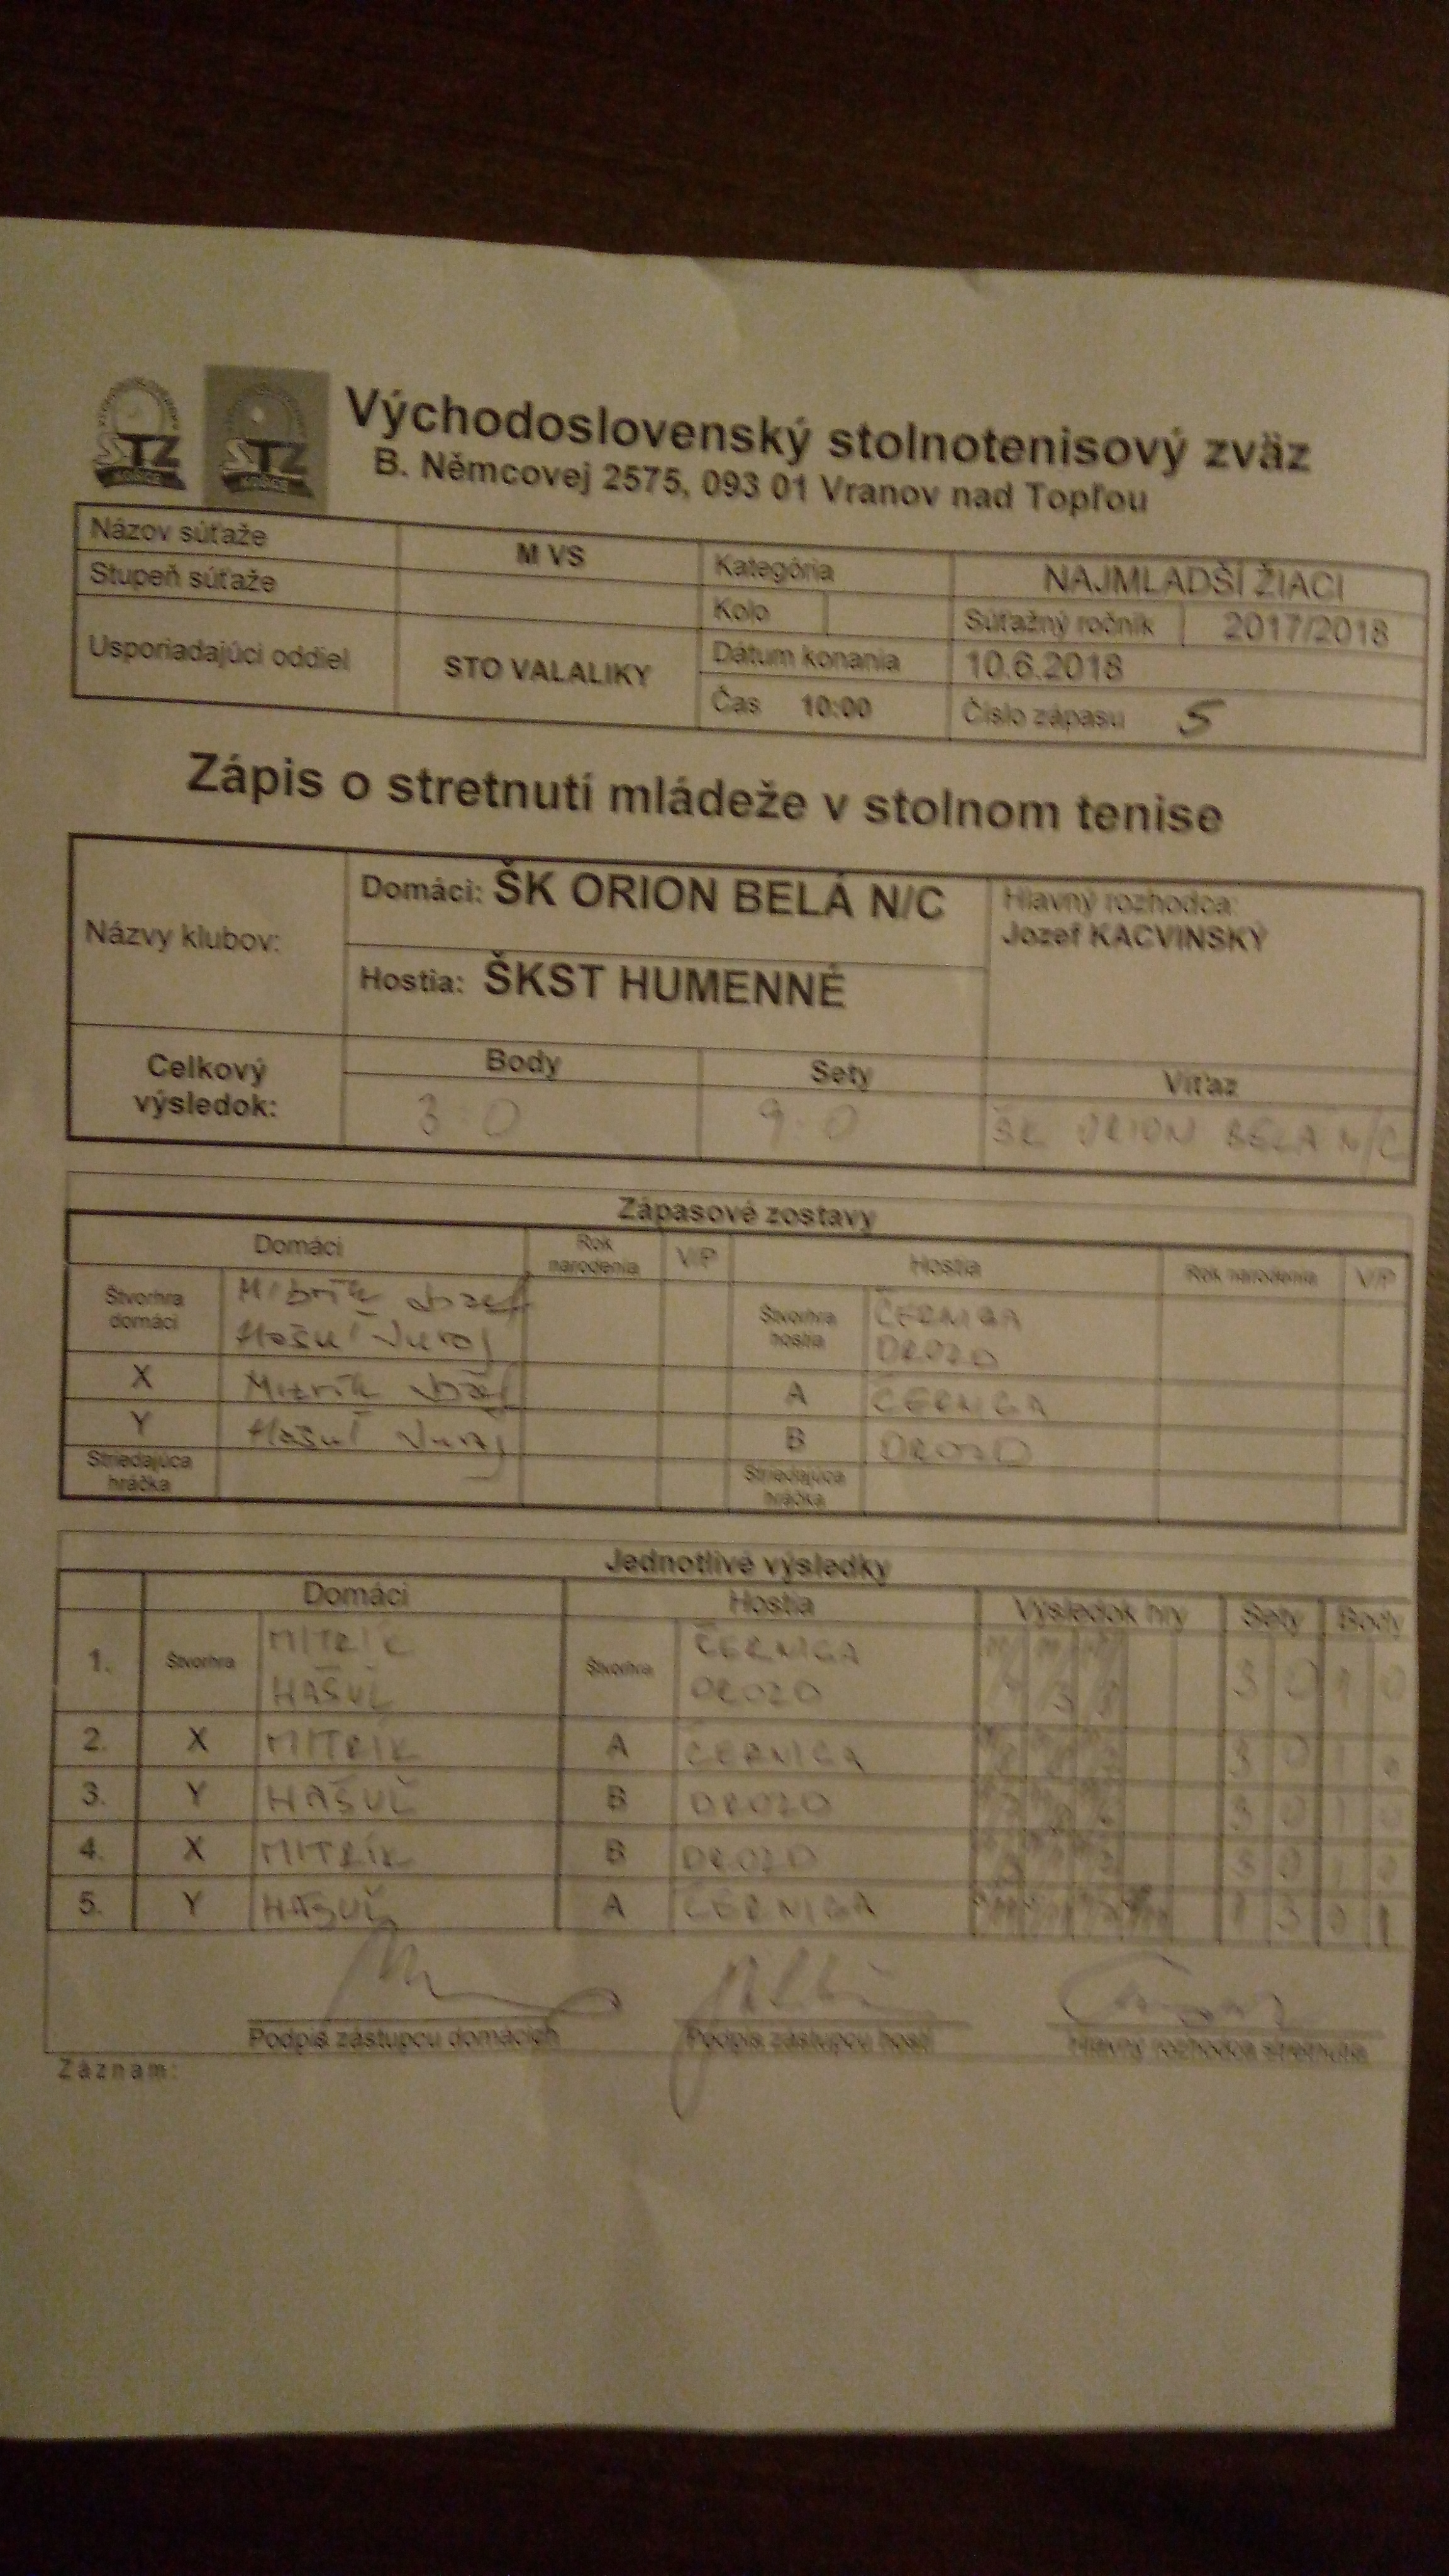 STZ STZ
Východoslovenský stolnotenisový zväz
B. Němcovej 2575, 093 01 Vranov nad Topľou
Názov súťaže M VS Kategória NAJMLADŠÍ ŽIACI
Stupeň súťaže Kolo Súťažný ročník 2017/2018
Usporiadajúci oddiel STO VALALIKY Dátum konania 10.6.2018
Čas 10:00 Číslo zápasu 5
Zápis o stretnutí mládeže v stolnom tenise
Názvy klubov: Domáci: ŠK ORION BELÁ N/C Hlavný rozhodca:
Jozef KACVINSKÝ
Hostia: ŠKST HUMENNÉ
Celkový výsledok: Body Sety Víťaz
3:0 9:0 ŠK ORION BELÁ N/C
Zápasové zostavy
Domáci Rok narodenia V/P Hostia Rok narodenia V/P
Štvorhra domáci Mitrík Jozef Štvorhra hostia ČERNIGA
Hašuľ Juraj DROZD
X Mitrík Jozef A ČERNIGA
Y Hašuľ Juraj B DROZD
Striedajúca hráčka Striedajúca hráčka
Jednotlivé výsledky
Domáci Hostia Výsledok hry Sety Body
1. Štvorhra MITRÍK Štvorhra ČERNIGA 3 0 1 0
HAŠUĽ DROZD
2. X MITRÍK A ČERNIGA 3 0 1 0
3. Y HAŠUĽ B DROZD 3 0 1 0
4. X MITRÍK B DROZD 3 0 1 0
5. Y HAŠUĽ A ČERNIGA 1 3 0 1
Podpis zástupcu domácich Podpis zástupcu hostí Hlavný rozhodca stretnutia
Záznam: